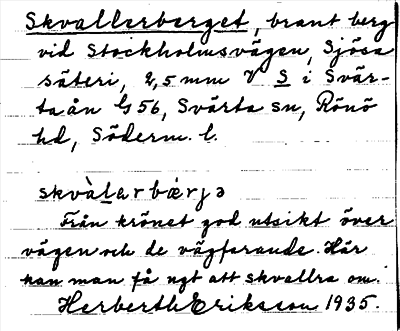 Skvallerberget, brant berg
vid Stockholmsvägen, Sjösa
säteri, 2,5 mm V S i Svär-
taån G 56, Svärta sn, Rönö
hd, Söderm. l.
skvàlarbæ̀rjə
Från krönet god utsikt över
vägen och de vägfarande. Här
kan man få ngt att skvallra om.
Herberth Eriksson 1935.